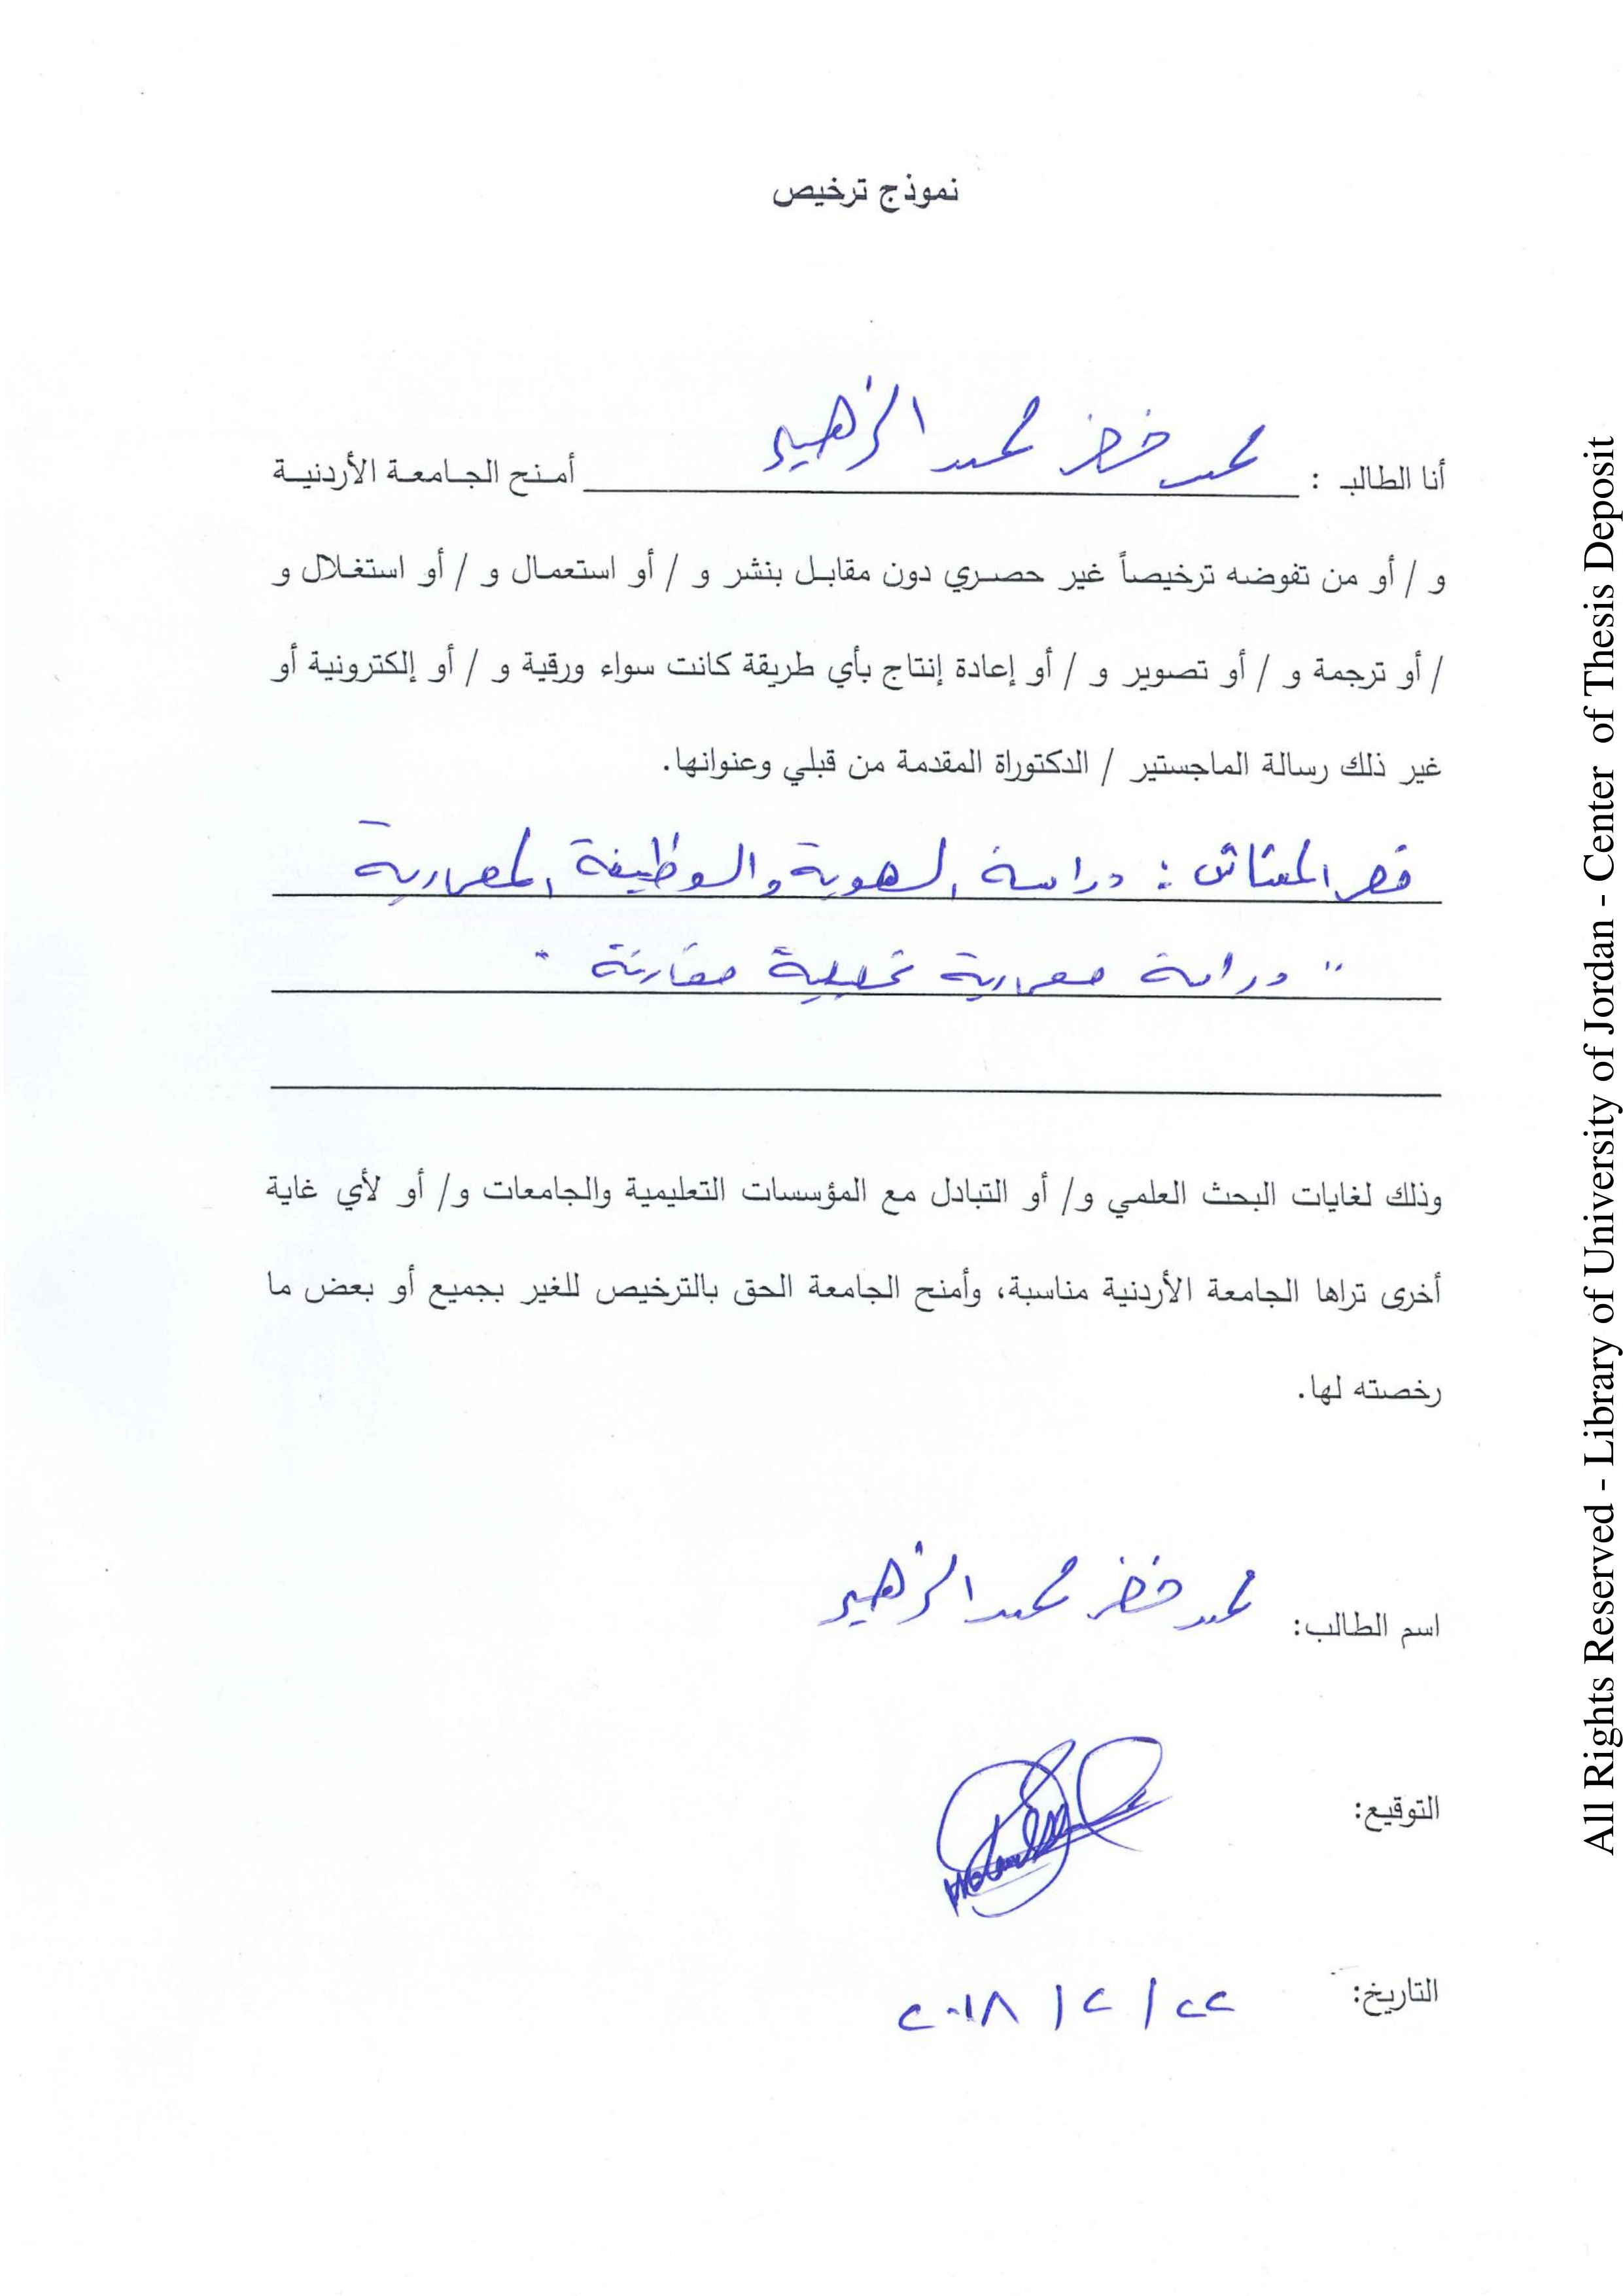 نموذج ترخيص
أنا الطالب : محمد خضر محمد الزهير أمنح الجامعة الأردنية
و / أو من تفوضه ترخيصاً غير حصري دون مقابل بنشر و / أو استعمال و / أو استغلال و
/ أو ترجمة و / أو تصوير و / أو إعادة إنتاج بأي طريقة كانت سواء ورقية و / أو إلكترونية أو
غير ذلك رسالة الماجستير / الدكتوراة المقدمة من قبلي وعنوانها.
قصر المشاش : دراسة الهوية والوظيفة المعمارية
" دراسة معمارية تحليلية مقارنة "
وذلك لغايات البحث العلمي و/ أو التبادل مع المؤسسات التعليمية والجامعات و/ أو لأي غاية
أخرى تراها الجامعة الأردنية مناسبة، وأمنح الجامعة الحق بالترخيص للغير بجميع أو بعض ما
رخصته لها.
اسم الطالب: محمد خضر محمد الزهير
التوقيع:
التاريخ: ٢٢ / ٢ / ٢٠١٨
All Rights Reserved - Library of University of Jordan - Center of Thesis Deposit